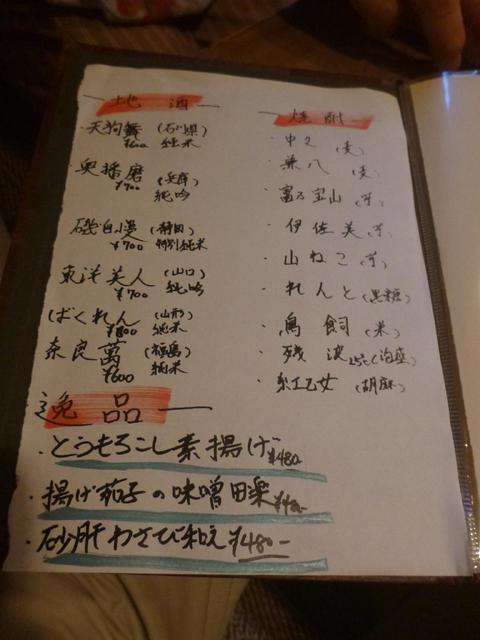 地酒
天狗舞 (石川県)
¥600 純米
奥播磨 (兵庫)
¥700 純吟
磯自慢 (静岡)
¥700 特別純米
東洋美人 (山口)
¥700 純吟
ばくれん (山形)
¥800 純米
奈良萬 (福島)
¥600 純米
焼酎
・中々 (麦)
・兼八 (麦)
・富乃宝山 (芋)
・伊佐美 (芋)
・山ねこ (芋)
・れんと (黒糖)
・鳥飼 (米)
・残波 (泡盛)
・紅乙女 (胡麻)
逸品
・とうもろこし素揚げ ¥480
・揚げ茄子の味噌田楽
・砂肝わさび和え ¥480-